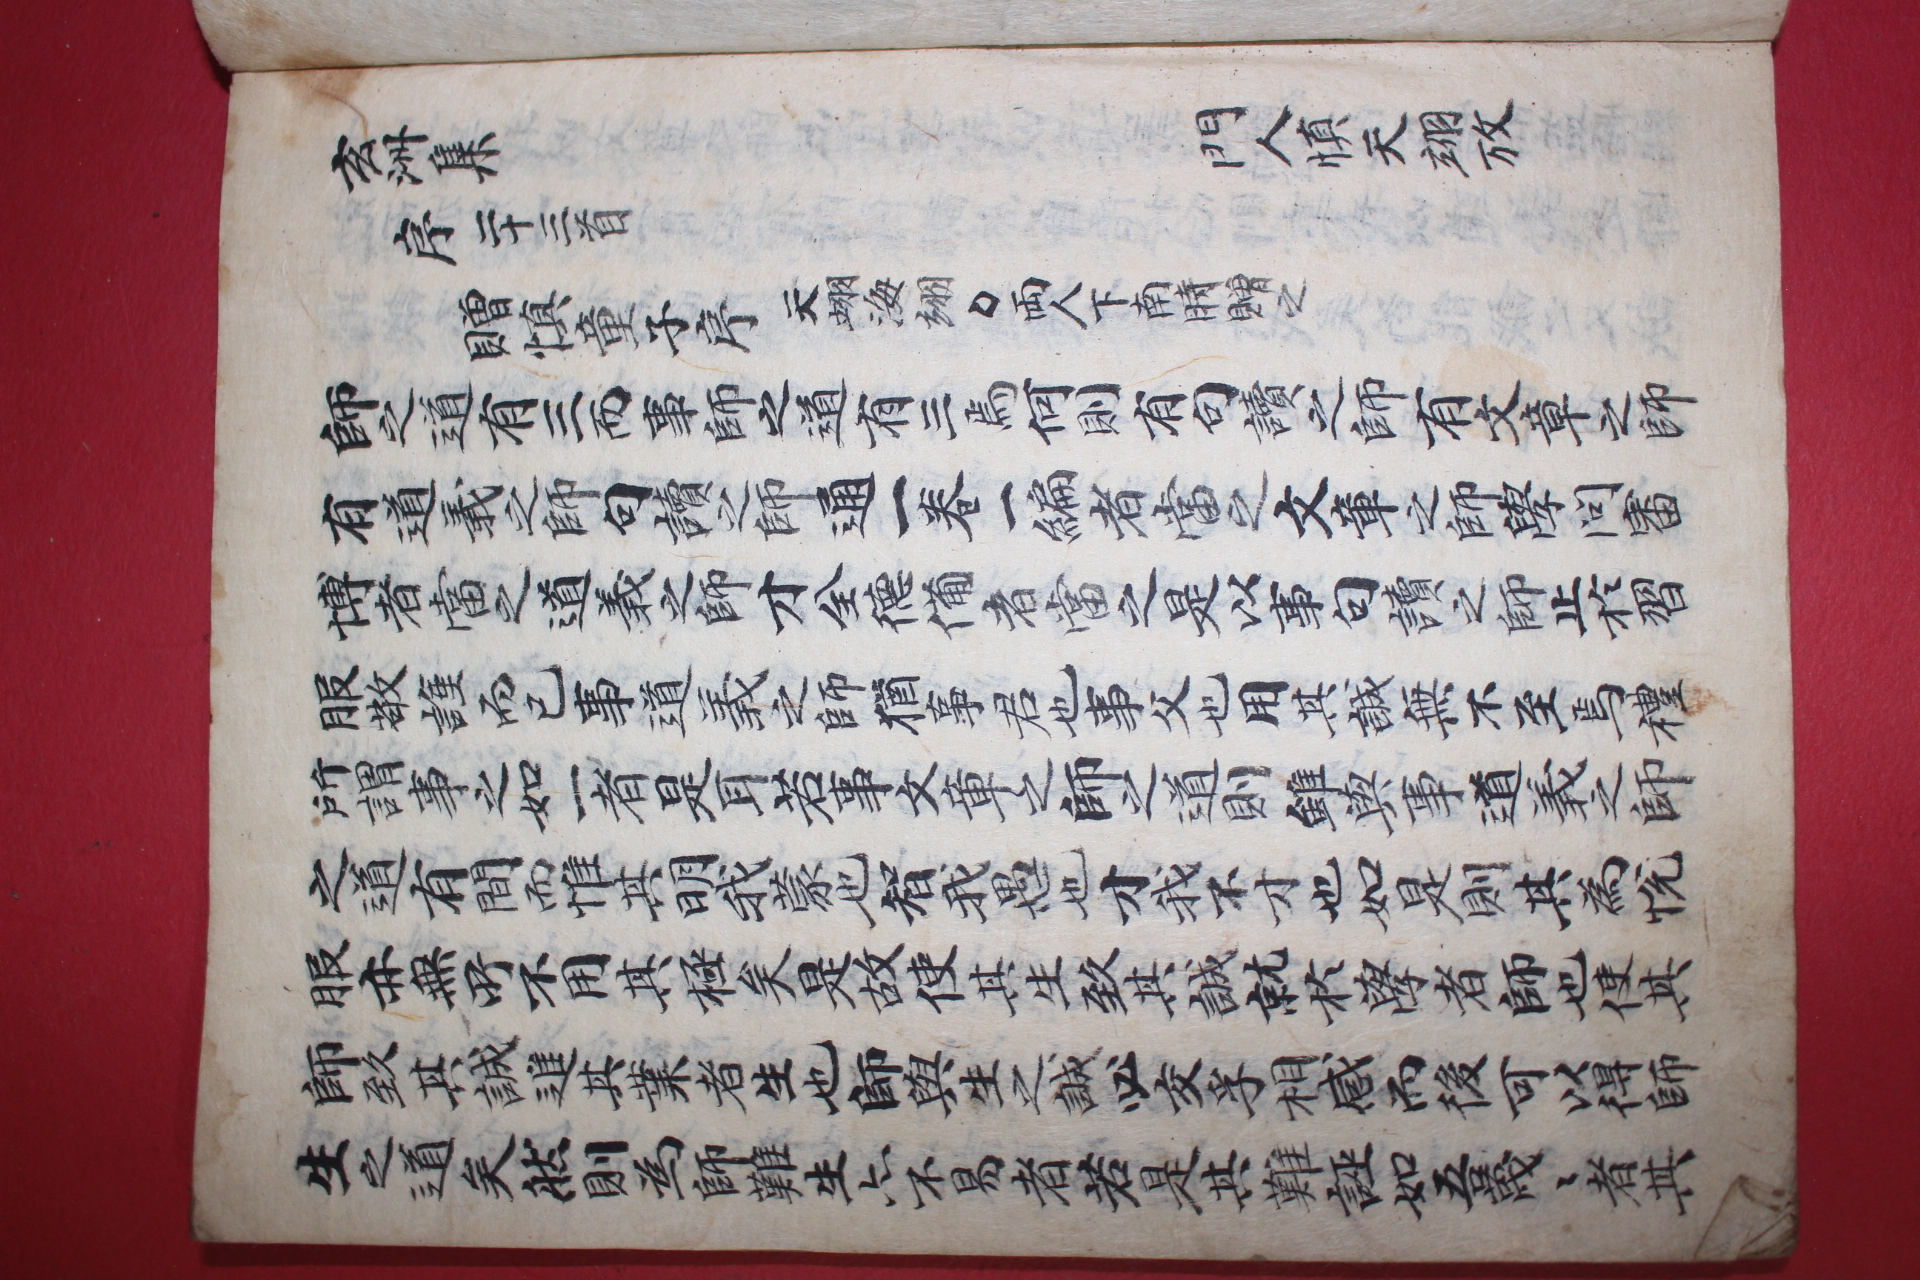 玄洲集 門人慎天翊攷
序 二十三首
贈慎童子序 天翊海翊 兩人下南時贈之
師之道有三而事師之道有三焉何則有句讀之師有文章之師
有道義之師句讀之師通一卷一編者當之文章之師學問富
博者當之道義之師才全德備者當之是以事句讀之師止於習
服敬謹而已事道義之師猶事君也事父也用其誠無不至焉禮
所謂事之如一者是耳若事文章之師之道則雖與事道義之師
之道有間而惟其明我蒙也智我愚也才我不才也如是則其為悅
服亦無所不用其極矣是故使其生致其誠就於學者師也使其
師致其誠進其業者生也師與生之誠必交孚相感而後可以得師
生之道矣然則為師難生亦不易者若是其難誣如吾叢〻者其